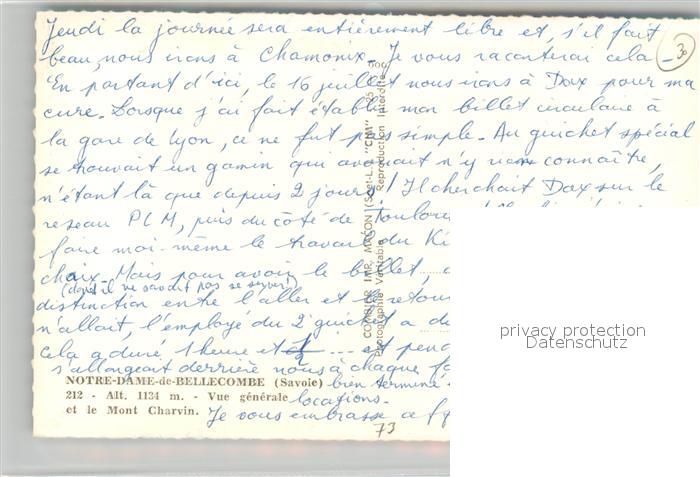 Jeudi la journée sera entièrement libre et, s'il fait
beau, nous irons à Chamonix. Je vous raconterai cela -
30
En partant d'ici, le 16 juillet nous irons à Dax pour ma
cure. Lorsque j'ai fait établir mon billet circulaire à
la gare de Lyon, ce ne fut pas simple. Au guichet spécial
se trouvait un gamin qui avouait n'y rien connaître,
n'étant là que depuis 2 jours! Il cherchait Dax sur le
reseau PLM, puis du côté de
faire moi-même le travail du
choix. Mais pour avoir le billet,
(dont il ne savait pas se servir)
distinction entre l'aller et le retour
n'allait, l'employé du 2e guichet a
cela a duré 1 heure et ½ ... et
s'allongeant derrière nous à chaque
NOTRE-DAME-de-BELLECOMBE (Savoie)
bien terminé
212 - Alt. 1134 m. - Vue générale
et le Mont Charvin.
locations.
Je vous embrasse
73
COMBIER IMP. MACON (S.-et-L.) "CIM"
Photographie Véritable Reproduction Interdite
privacy protection
Datenschutz